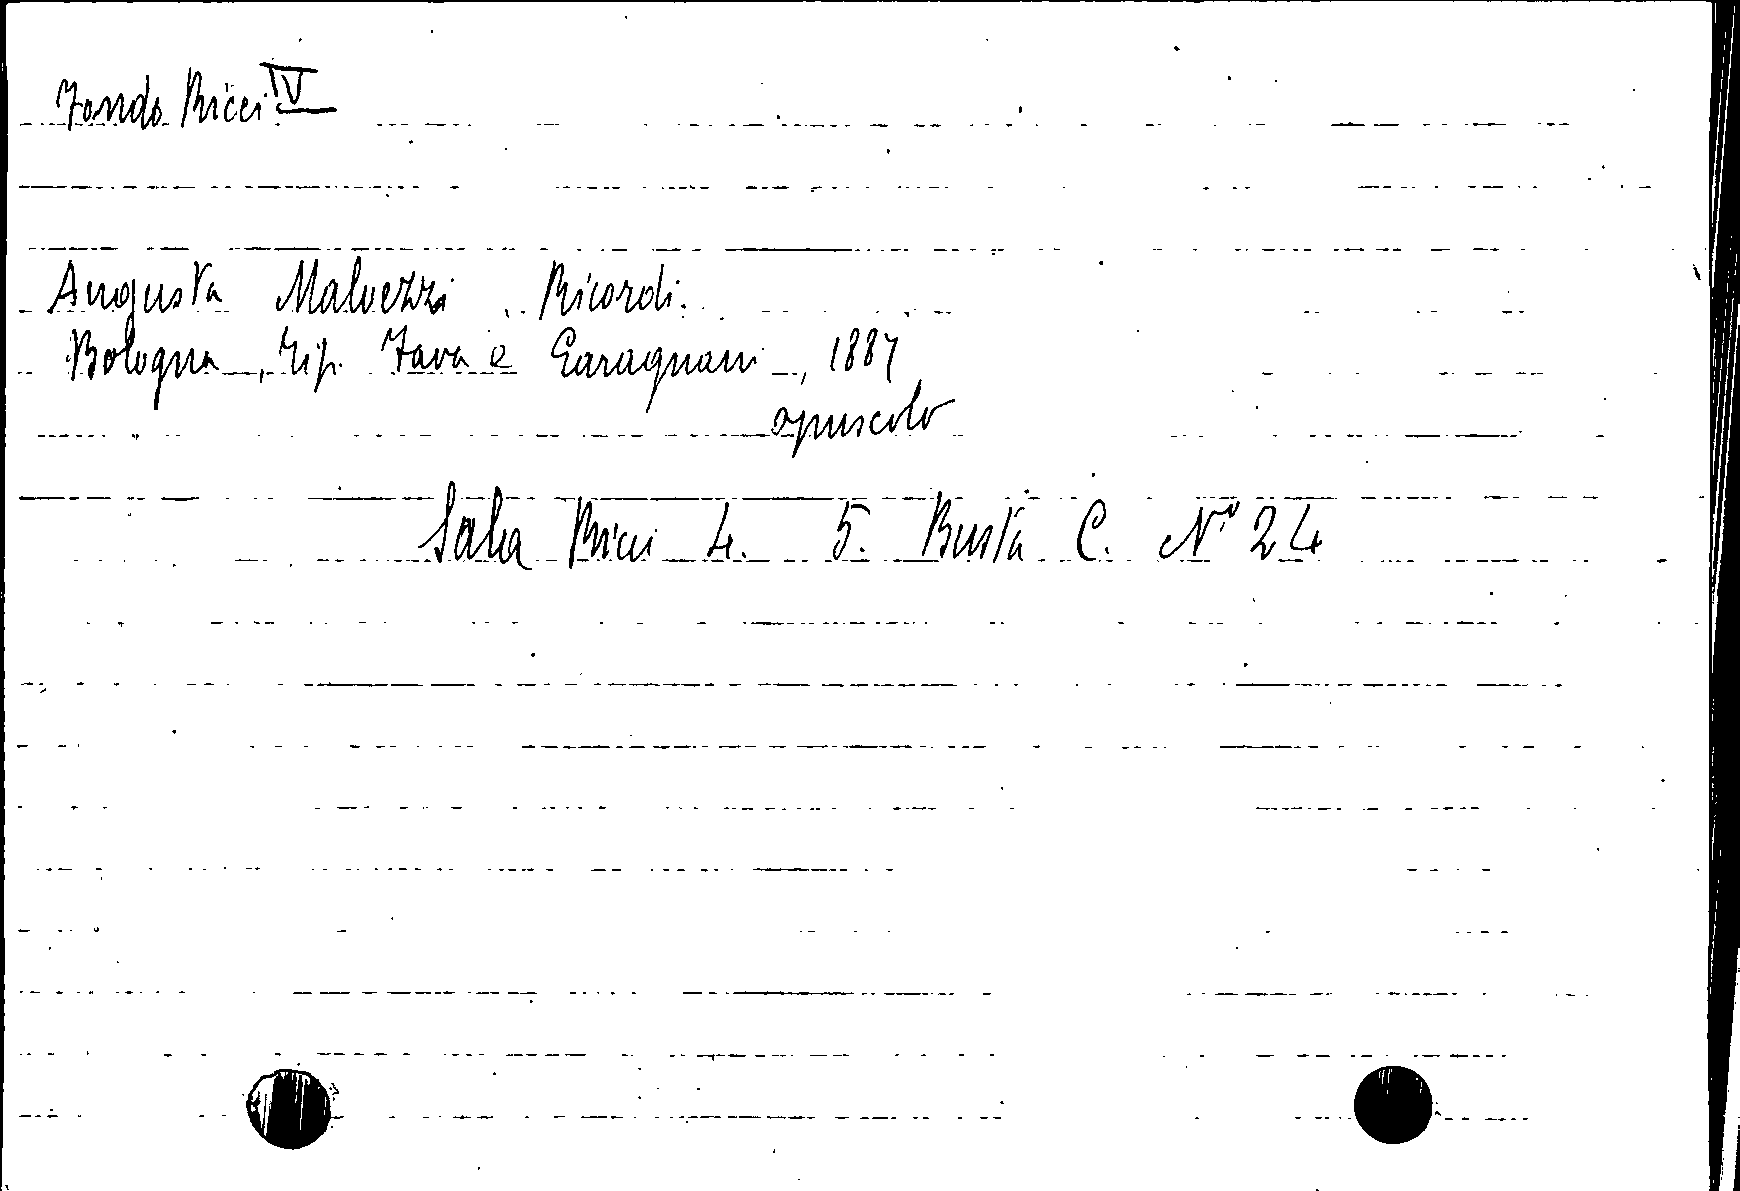 Fondo Ricci IV
Augusta Malvezzi. Ricordi.
Bologna, Tip. Fava e Garagnani, 1887
opuscolo
Sala Ricci 4. 5. Busta C. N° 24